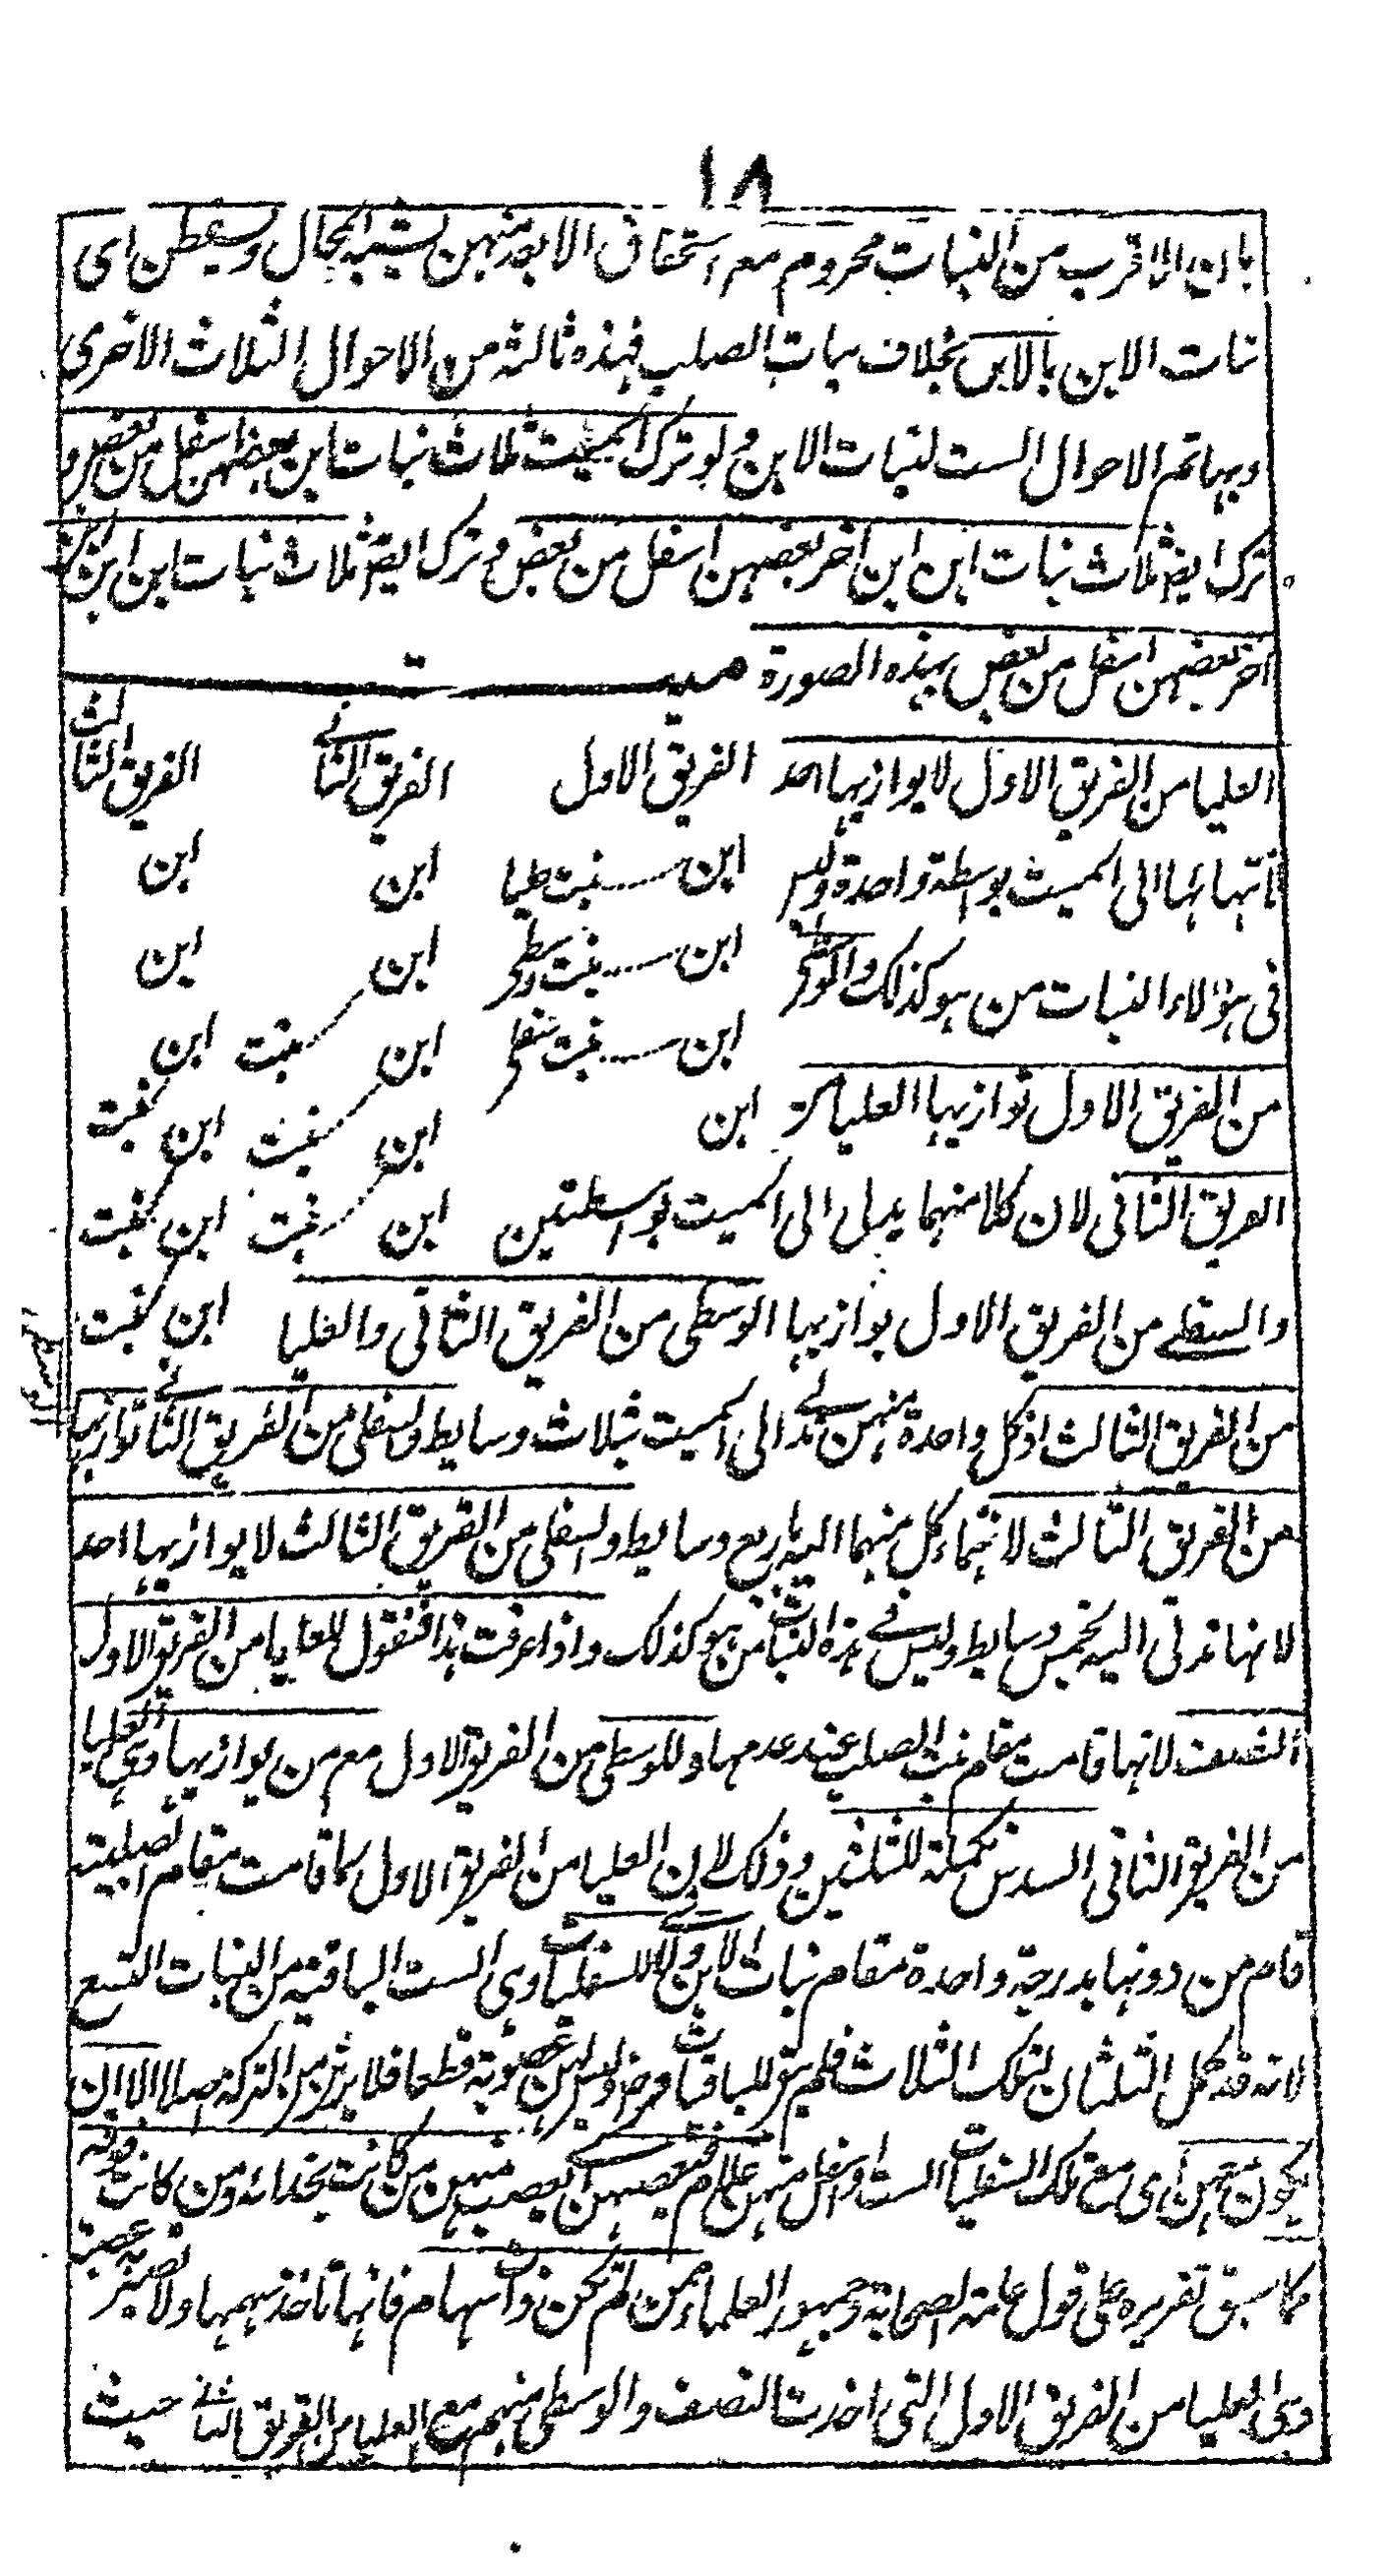 ١٨
بان الاقرب من البنات محروم مع استحقاق الابعد منهن يشبه المحال ويسقطن اى
بنات الابن بالابن بخلاف بنات الصلب فهذه ثالثة من الاحوال الثلاث الاخرى
وبها تتم الاحوال الست لبنات الابن ولو ترك الميت ثلاث بنات ابن بعضهن اسفل من بعض و
ترك ايضا ثلاث بنات ابن ابن اخر بعضهن اسفل من بعض وترك ايضا ثلاث بنات ابن ابن ابن
اخر بعضهن اسفل من بعض بهذه الصورة ميت
العليا من الفريق الاول لا يوازيها احد الفريق الاول الفريق الثانى الفريق الثالث
لانتهائها الى الميت بواسطة واحدة وليس ابن بنت عليا ابن ابن
فى هؤلاء البنات من هو كذلك والوسطى ابن بنت وسطى ابن ابن
ابن بنت سفلى ابن بنت ابن
من الفريق الاول توازيها العليا من ابن ابن بنت ابن بنت
الفريق الثانى لان كلا منهما يدلى الى الميت بواسطتين ابن بنت ابن بنت
والسفلى من الفريق الاول يوازيها الوسطى من الفريق الثانى والعليا ابن بنت
من الفريق الثالث اذ كل واحدة منهن تدلى الى الميت بثلاث وسايط والسفلى من الفريق الثانى توازيها
من الفريق الثالث لانتماء كل منهما اليه باربع وسايط والسفلى من الفريق الثالث لا يوازيها احد
لانها تدلى اليه بخمس وسايط وليس فى هذه البنات من هو كذلك واذا عرفت هذا فنقول للعليا من الفريق الاول
النصف لانها قامت مقام بنت الصلب عند عدمها وللوسطى من الفريق الاول مع من يوازيها وهى العليا
من الفريق الثانى السدس تكملة للثلثين وذلك لان العليا من الفريق الاول لما قامت مقام الصلبية
قام من دونها بدرجة واحدة مقام بنات الابن ولا شئ للسفليات وهى الست الباقية من البنات التسع
لانه قد كمل الثلثان لتلك الثلاث فلم يبق للباقيات فرض وليس لهن عصوبة قطعا فلا يرثن من التركة اصلا الا ان
يكون معهن اى مع تلك السفليات الست او اسفل منهن غلام فيعصبهن اى يعصب منهن من كانت بحذائه ومن كانت فوقه
كما سبق تقريره على قول عامة الصحابة وجمهور العلماء ممن لم تكن ذات سهام فانها تاخذ سهمها ولا تصير به عصبة
وهى العليا من الفريق الاول التى اخذت النصف والوسطى منهم مع العليا من الفريق الثانى حيث